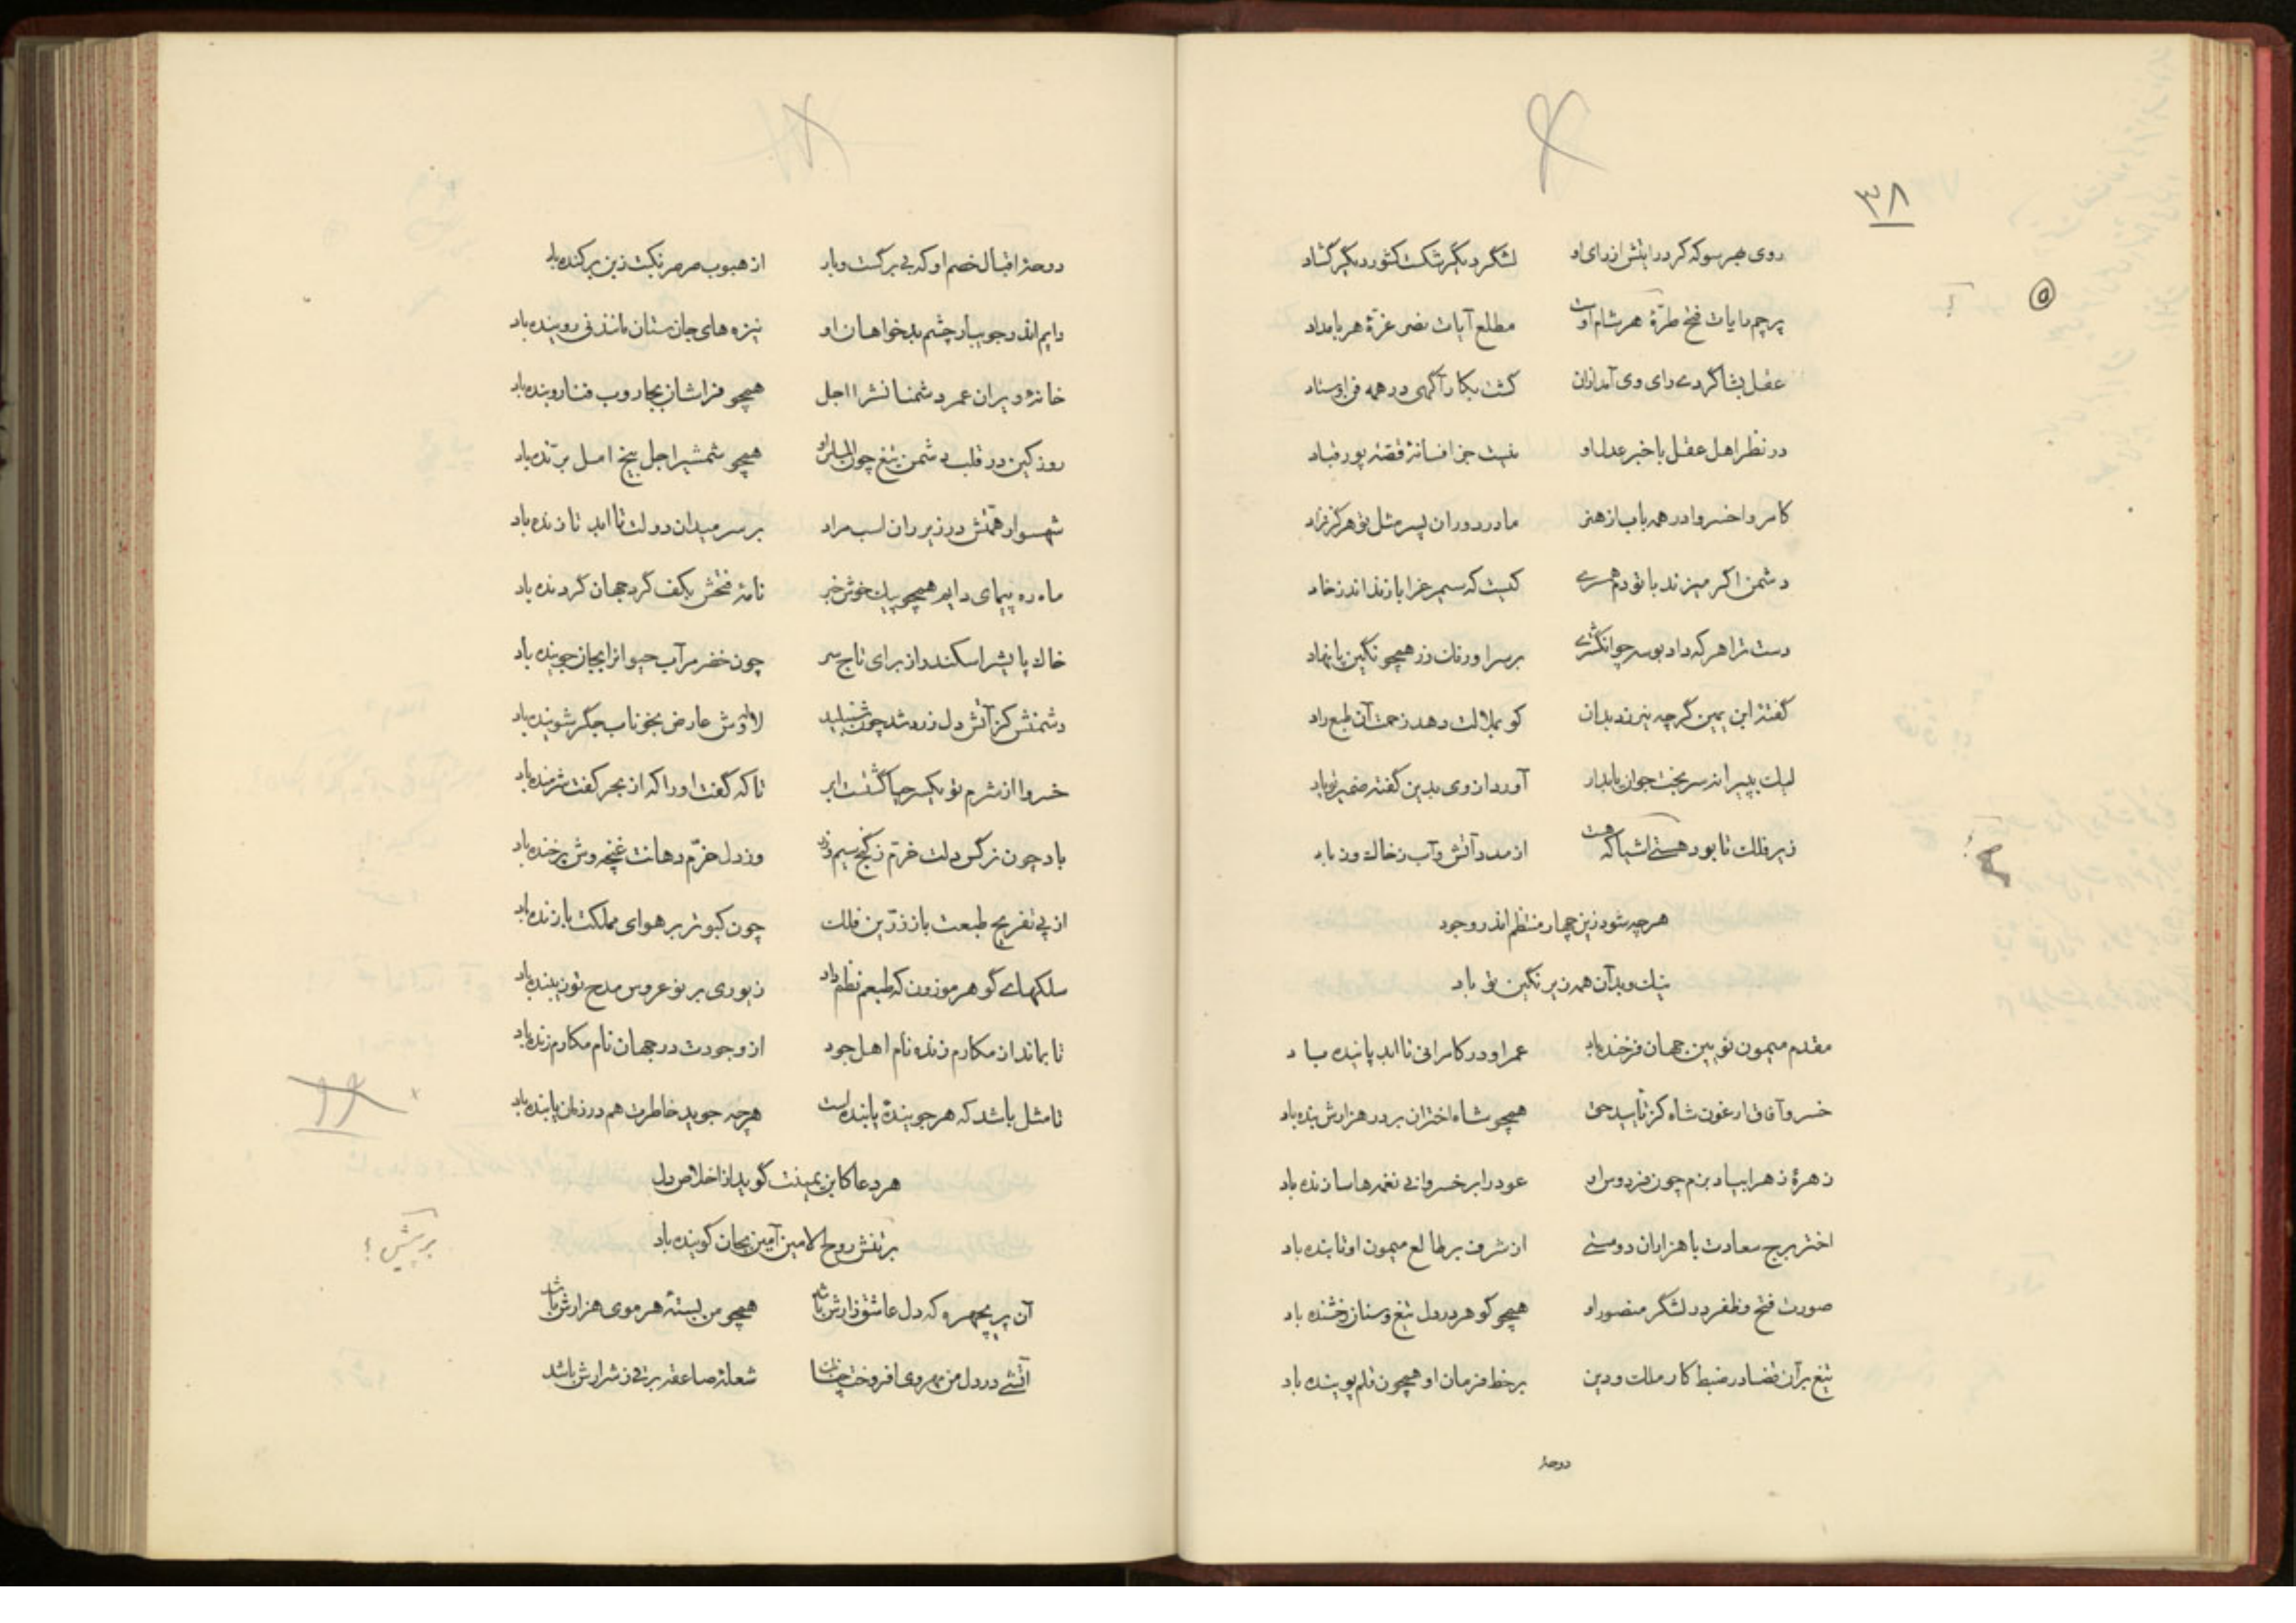 ۳۸
روی بهر سو که کرد رایتش از رای او لشگر دیگر شکست کشور دیگر گشاد
پرچم رایات فتح طرّهٔ هر شام اوست مطلع آیات نصر غرّهٔ هر بامداد
عقل بشاگردے رای وی آمد از آن گشت بکار آگهی در همه فن اوستاد
در نظر اهل عقل با خبر عدل او نیست جز افسانهٔ قصّهٔ پور قباد
کامروا خسروا در همه باب از هنر مادر دوران پسر مثل تو هرگز نزاد
دشمن اگر میزند با تو دم همسرے کیست که سیمرغ را باز نداند ز خاد
دست ترا هر که داد بوسه چو انگشترے بر سر او زر همچو نگین پا نهاد
گفتهٔ ابن یمین گرچه نیرزد بدان کو بملالت دهد زحمت آن طبع راد
لیک بپیرانه سر بخت جوان پایدار آورد از وی بدین گفته ضمیر تو یاد
زیر فلک تا بود هستے اشیا که هست از مدد آتش و آب ز خاک و ز باد
هر چه شود زین چهار منتظم اندر وجود
نیک و بد آن همه زیر نگین تو باد
مقدم میمون نویین جهان فرخنده باد عمر او در کامرانی تا ابد پاینده باد
خسرو آفاق ارغون شاه کز تأیید حق همچو شاه اختران بر در هزارش بنده باد
زهرهٔ زهرا بیاد بزم چون فردوس او عود را بر خسروانی نغمه‌ها سازنده باد
اختر برج سعادت با هزاران دوستے از شرف بر طالع میمون او تابنده باد
صورت فتح و ظفر در لشگر منصور او همچو گوهر در دل تیغ و سنان رخشنده باد
تیغ برّان قضا در ضبط کار ملک و دین بر خط فرمان او همچون قلم پوینده باد
دوحهٔ
دوحهٔ اقبال خصم او که بی برگست و بار از هبوب صرصر نکبت ز بن برکنده باد
دایم اندر جویبار چشم بدخواهان او نیزه‌های جان ستان مانند نی روینده باد
خانهٔ ویران عمر دشمنانش را اجل همچو فراشان بجاروب فنا روبنده باد
روز کین در قلب دشمن تیغ چون الماس او همچو شمشیر اجل بیخ امل برّنده باد
شهسوار همّتش در زیر ران اسب مراد بر سر میدان دولت تا ابد تازنده باد
ماه ره پیمای دایم همچو پیک خوش خبر نامهٔ فتحش بکف گرد جهان گردنده باد
خاک پایش را سکندر از برای تاج سر چون خضر مر آب حیوانرا بجان جوینده باد
دشمنش کز آتش دل زرد شد چون شنبلید لاله‌وش عارض بخوناب جگر شوینده باد
خسروا از شرم تو یکسر حیا گشتست ابر تا که گفت او را که از بحر کفت شرمنده باد
باد چون نرگس دلت خرّم ز گنج سیم و زر وز دل خرّم دهانت غنچه وش پر خنده باد
از پی تفریح طبعت باز زرّین فلک چون کبوتر بر هوای مملکت بازنده باد
سلکهاے گوهر موزون که طبعم نظم داد زیوری بر نو عروس مدح تو زیبنده باد
تا بماند از مکارم زنده نام اهل جود از وجودت در جهان نام مکارم زنده باد
تا مثل باشد که هر جویندهٔ یابنده است هر چه جوید خاطرت هم در زمان یابنده باد
هر دعا کابن یمینت گوید از اخلاص دل
بر تنش روح الامین آمین بجان گوینده باد
برپیش؟
آن پریچهره که دل عاشق زارش باشد همچو من بستهٔ هر موی هزارش باشد
آتشے در دل من مهر وی افروخت چنان شعلهٔ صاعقه برقی ز شرارش باشد